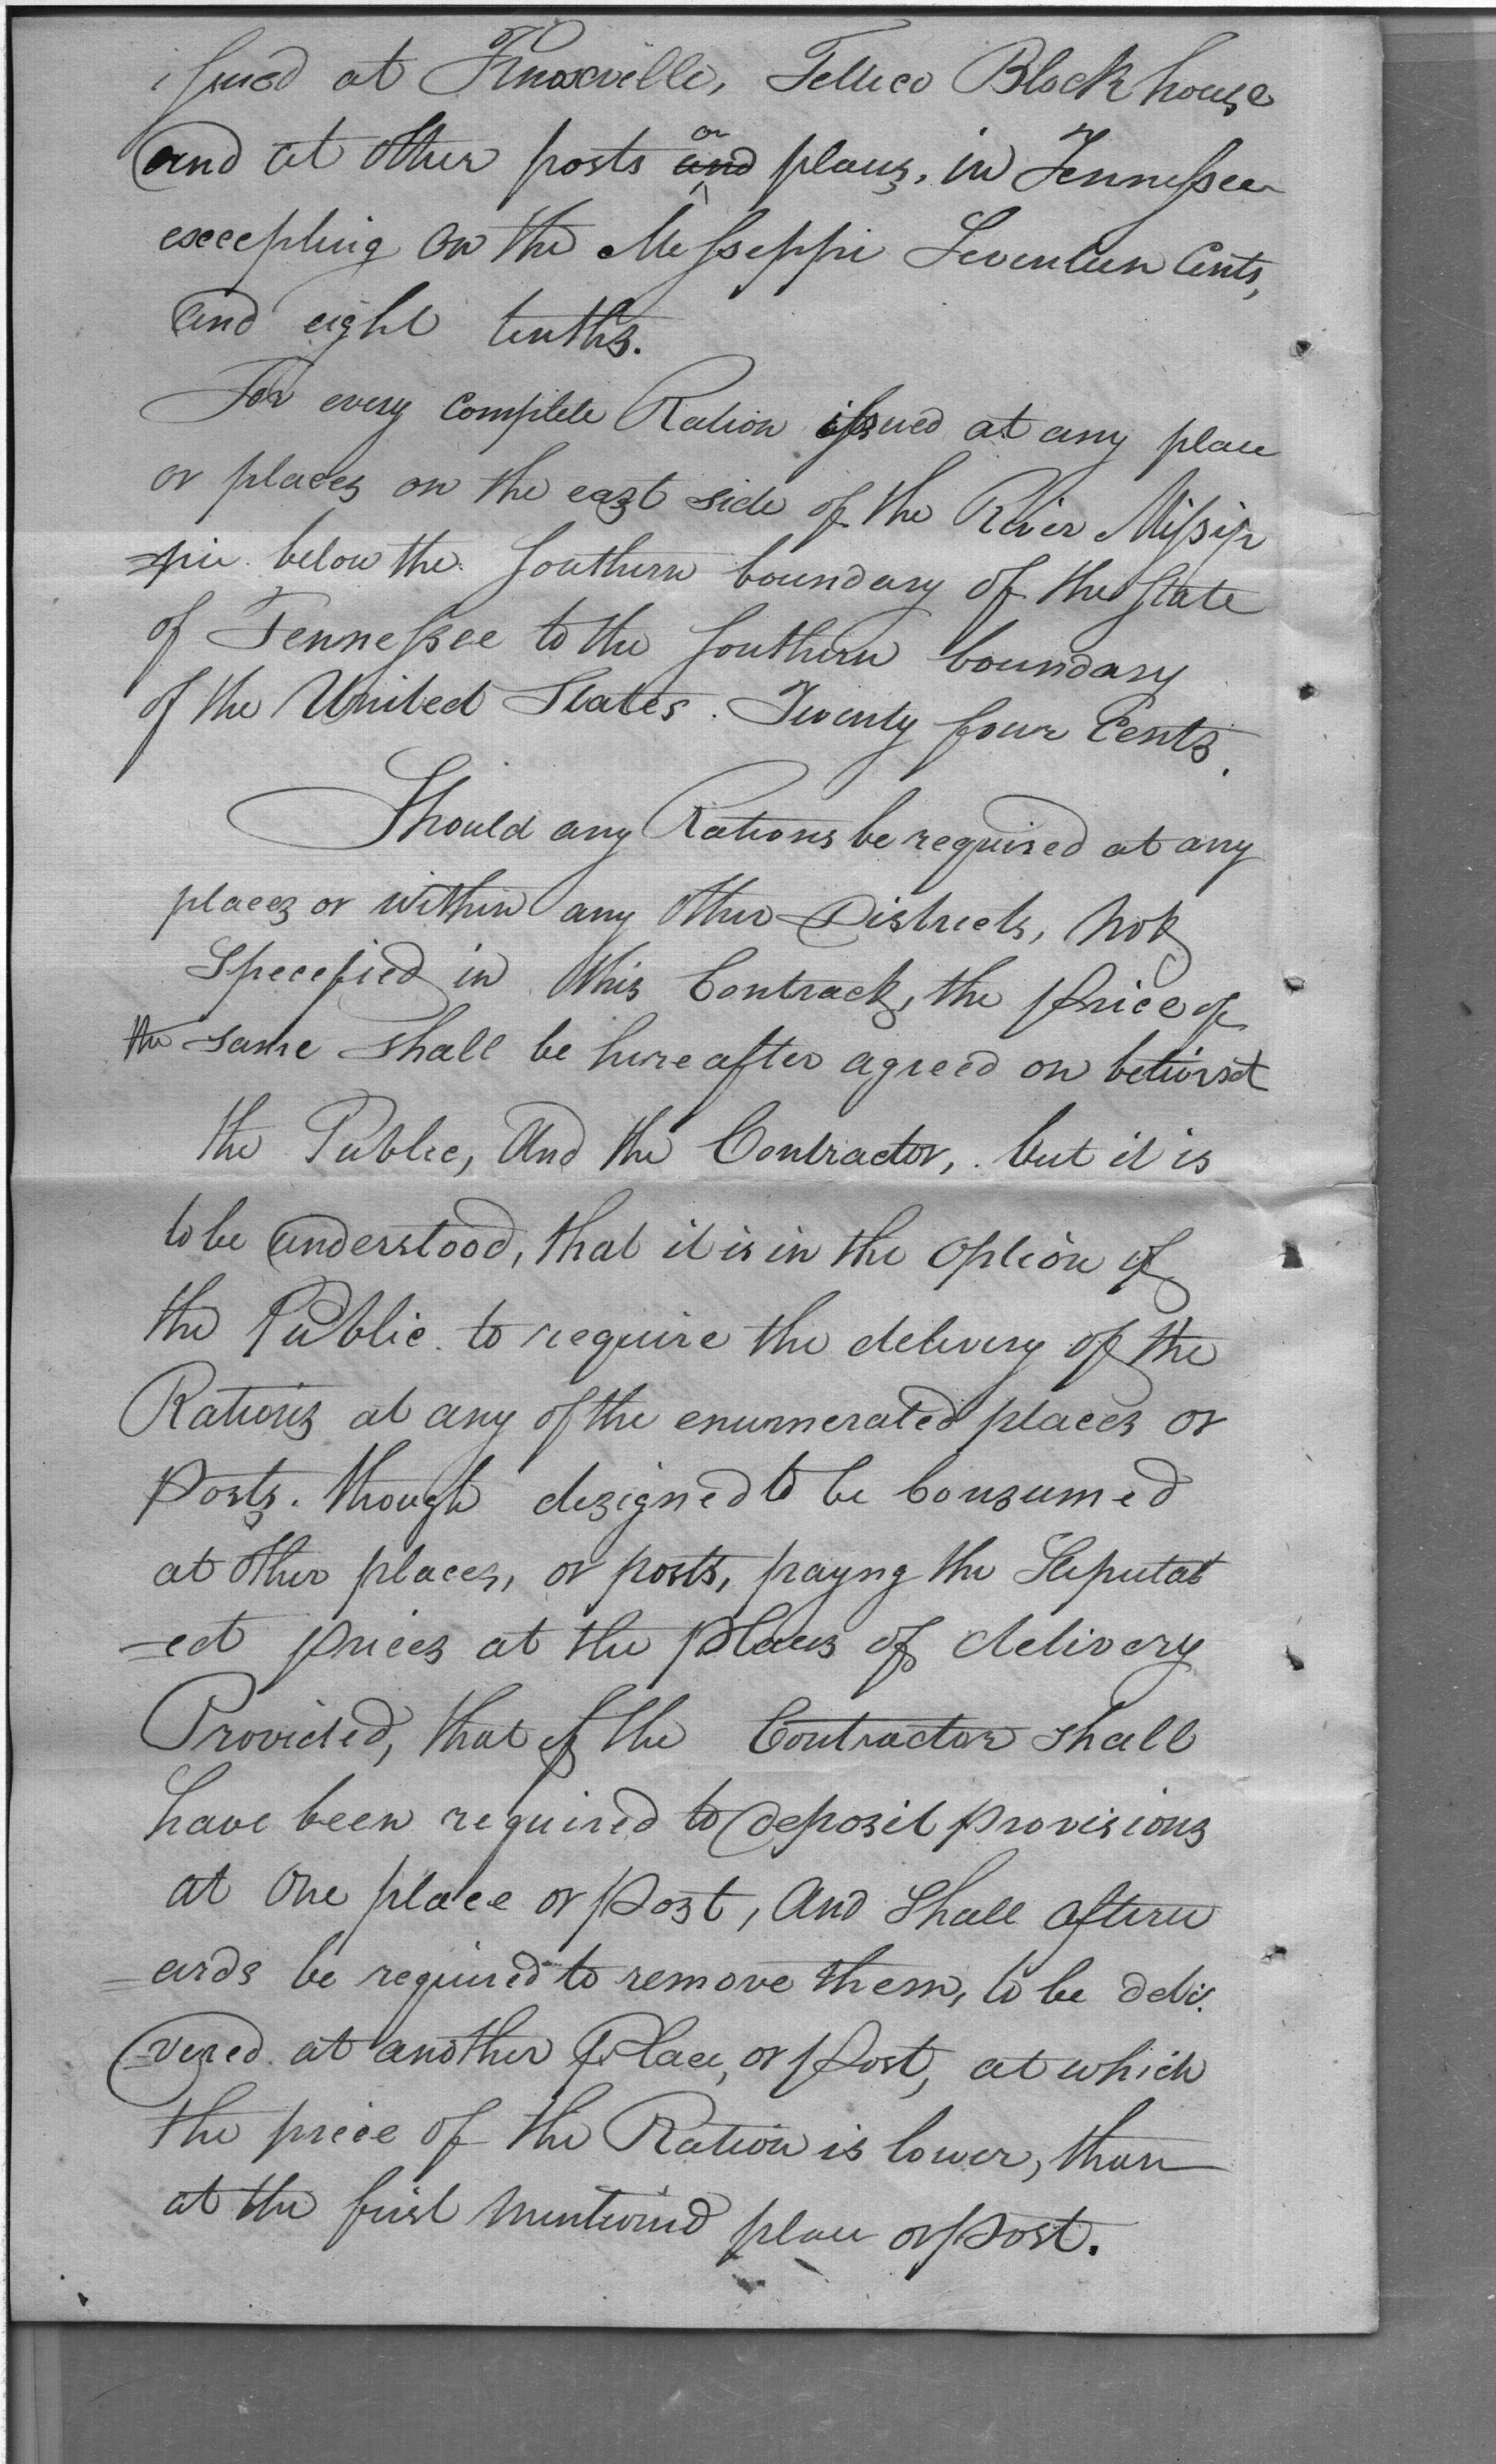 issued at Knoxville, Tellico Block house
and at other posts ~~and~~ or places, in Tennessee
excepting on the Messeppi Seventeen Cents,
and eight tenths.
For every complete Ration issued at any place
or places on the east side of the River Missip
=pie below the Southern boundary of the State
of Tennessee to the Southern boundary
of the United States. Twenty four Cents.
Should any Rations be required at any
places or within any other Districts, not
Specefied in this Contract, the price of
the same shall be hereafter agreed on betwixt
the Public, And the Contractor, but it is
to be understood, that it is in the option of
the Public to require the delivery of the
Rations at any of the enumerated places or
posts. though designed to be Consumed
at other places, or posts, payng the Steputat
=ed prices at the places of delivery
Provided, that if the Contractor shall
have been required to deposit provisions
at one place or post, And Shall afterw
=ards be required to remove them, to be deli
=vered at another Place, or post, at which
the price of the Ration is lower, than
at the first mentioned place or post.